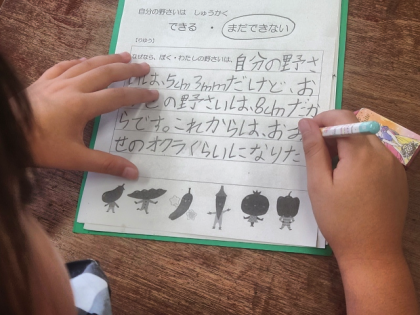 自分の野さいは しゅうかく
できる ・ まだできない
【りゆう】
なぜなら、ぼく・わたしの野さいは、自分の野さ
は、5cm3mmだけど、お
の野さいは、8cmだか
らです。これからは、おま
せのオクラぐらいになりた